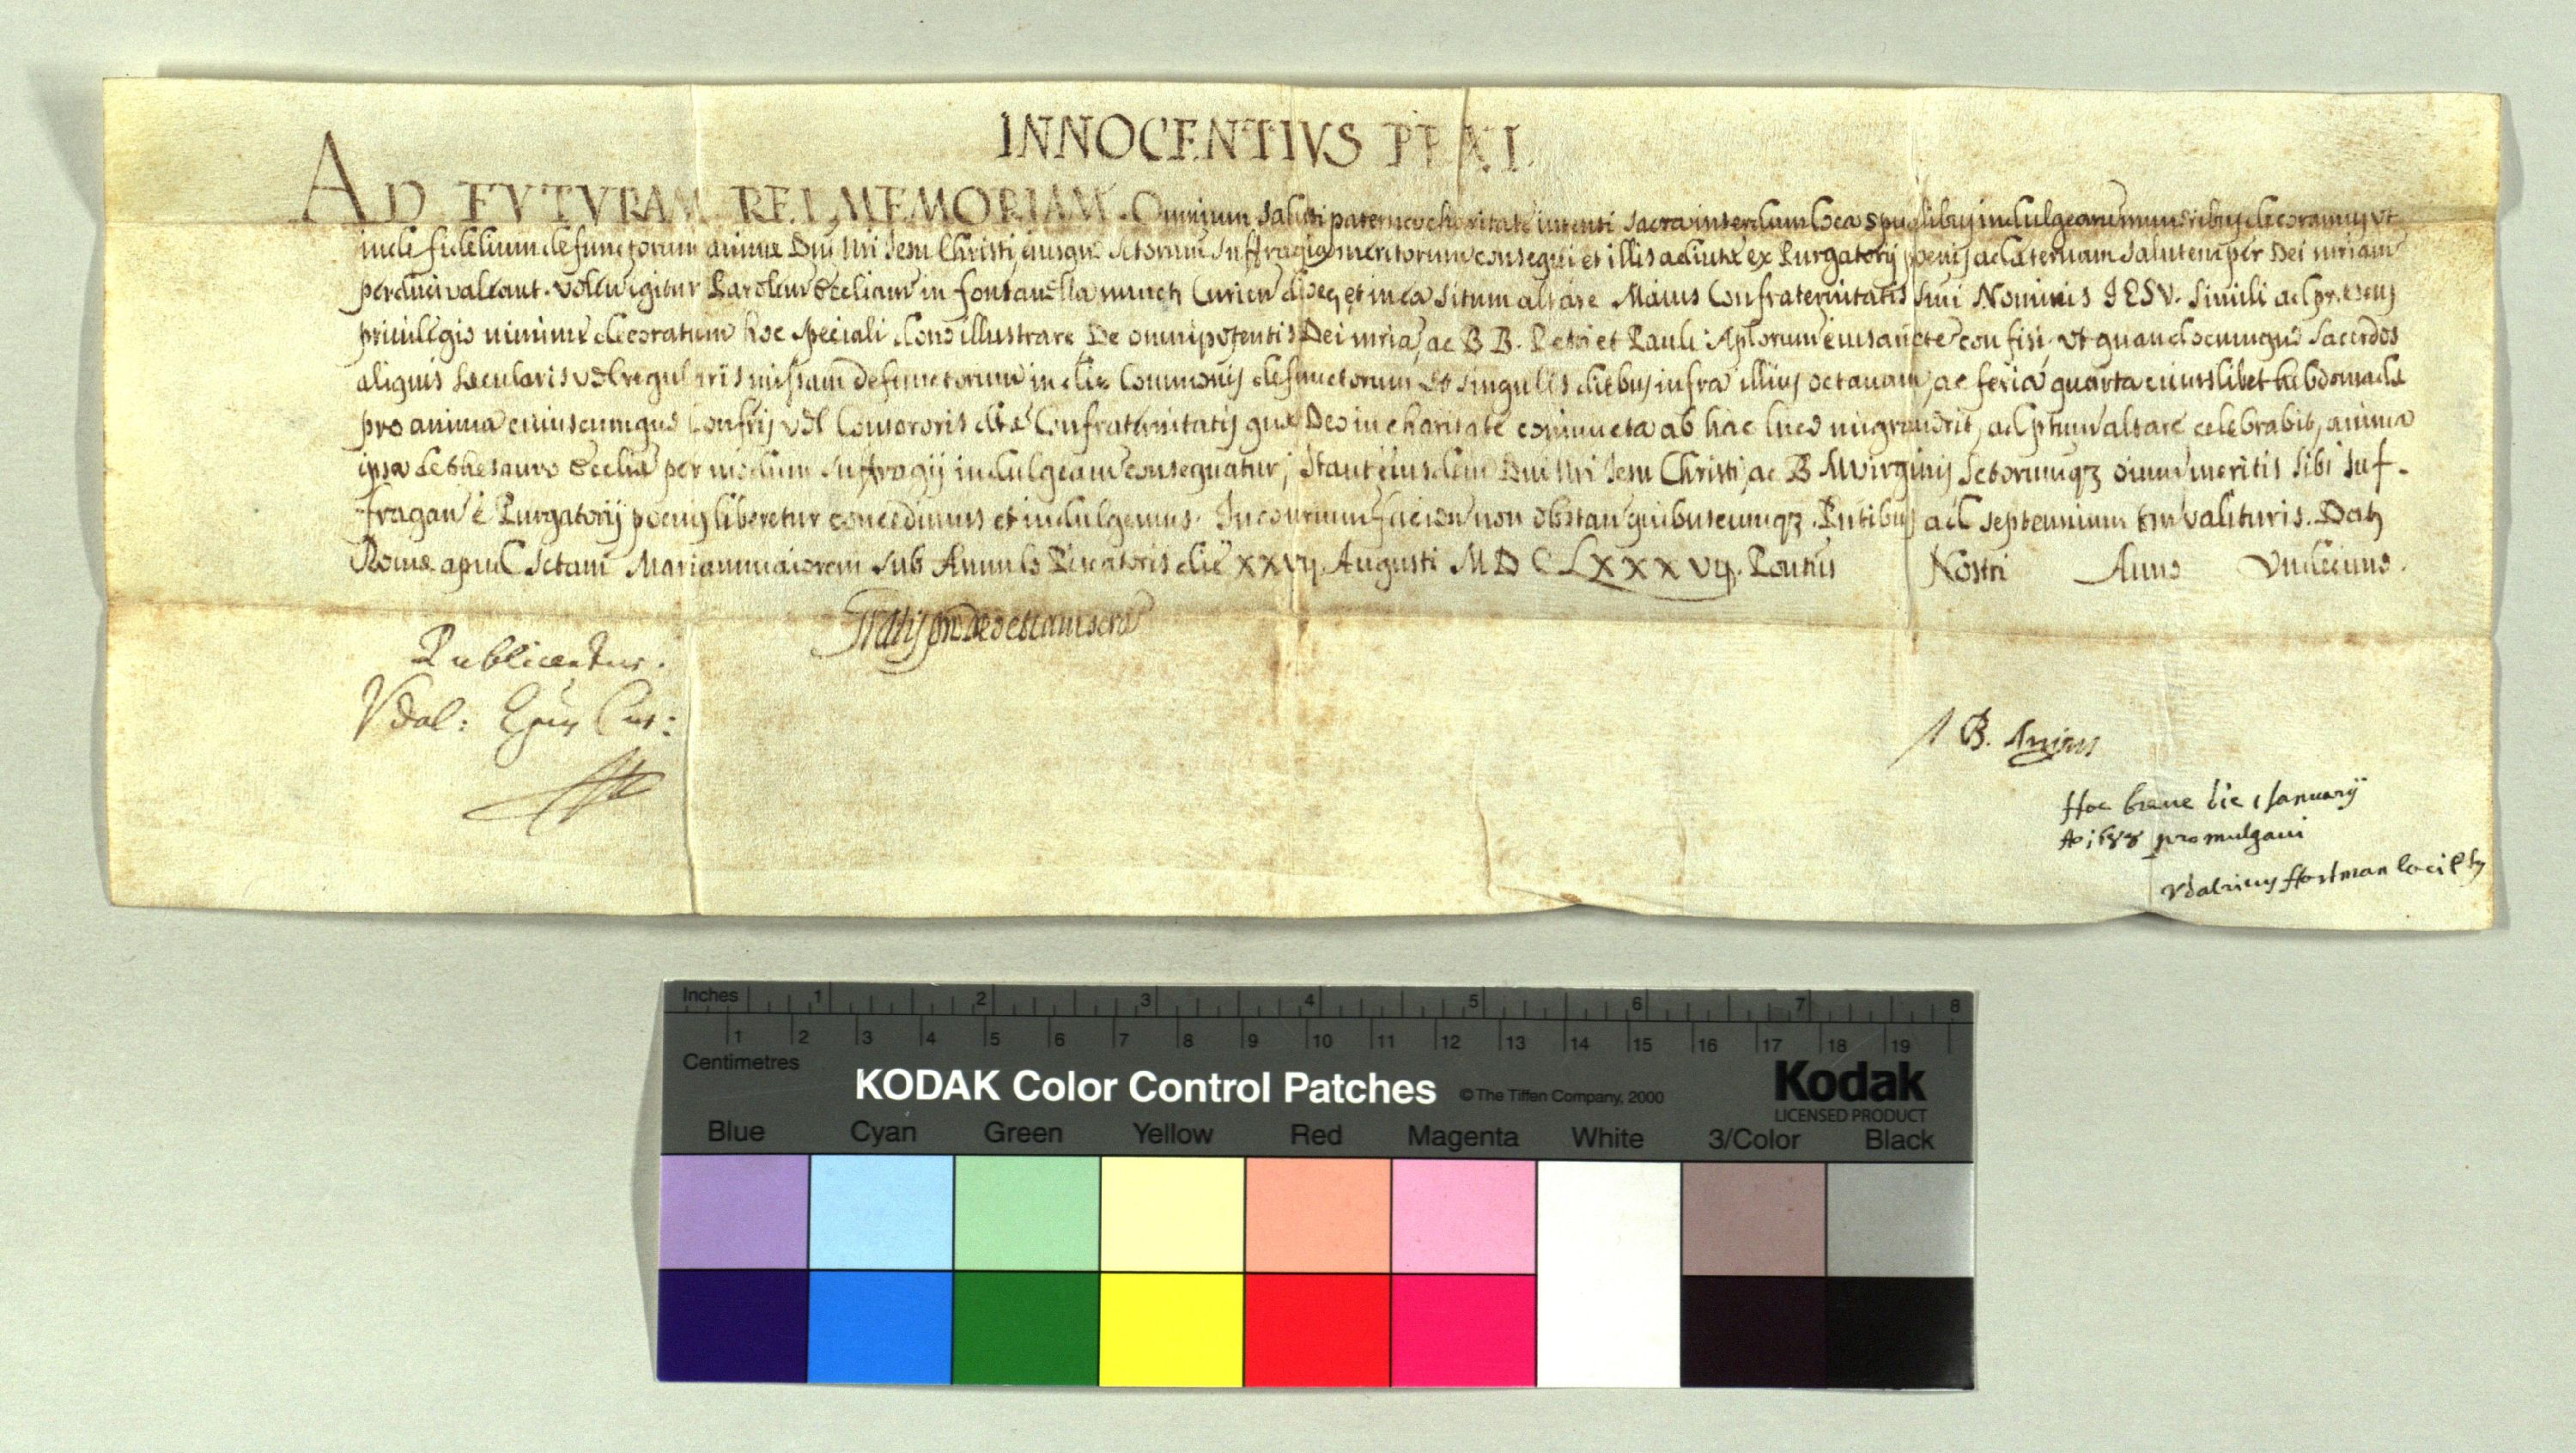 INNOCENTIVS PP XI.
AD FVTVRAM REI MEMORIAM. Omnium saluti paterna charitate intenti sacra interdum loca spualibus indulgearum muneribus decoramus ut
inde fidelium defunctorum animæ Dni Nri Jesu Christi, eiusque Sctorum suffragia meritorum consequi et illis adiutæ ex Purgatorij poenis ad æternam salutem per Dei mriam
perduci valeant. Volen igitur Parolem Eccliam in fontanella nuncti Curien dioec, et in ea situm altare Maius Confraternitatis Smi Nominis IESV. simili ad præsens
priuilegio minime decoratum hoc speciali dono illustrare De omnipotentis Dei mria, ac B B. Petri et Pauli Aplorum eius aucte confisi, ut quandocumque Sacerdos
aliquis Sæcularis vel regularis missam defunctorum in die Commonis defunctorum et singulis diebus infra illius octauam, ac feria quarta cuiuslibet hebdomadæ
pro anima cuiuscumque Confris vel Consororis dte Confraternitatis quæ Deo in charitate coniuncta ab hac luce migrauerit, ad ptum altare celebrabit, anima
ipsa de thesauro Eccliæ per modum suffragij indulgeam consequatur, Itaut eiusdem Dni Nri Jesu Christi, ac B M Virginis Sctorumqz oium meritis sibi suf-
fragan è Purgatorij poenis liberetur concedimus et indulgemus. In contrarium facien non obstan quibuscumqz. Pntibus ad septennium tm valituris. Dat
Romæ apud Sctam Mariam maiorem sub Annulo Piscatoris die xxvij. Augusti M D C Lxxxvij. Pontus Nostri Anno Vndecimo.
Gratis pro Deo et etiam scra
Publicentur.
Vdal: Epus Cur:
I B. Anigus
Hoc breue die 1 January
Ao 1688 promulgaui
Vdalricus Hartman loci